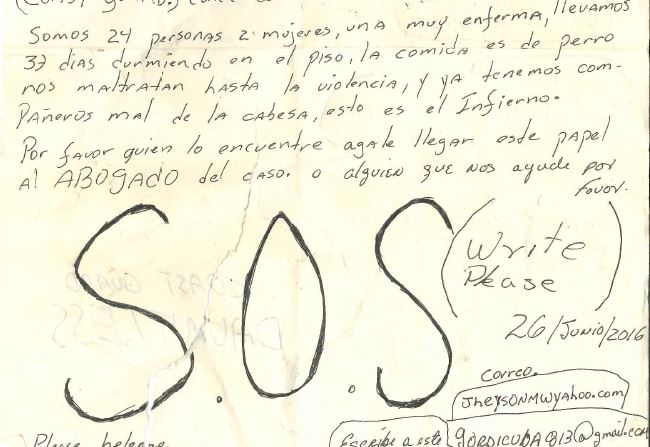 llevamos
Somos 24 personas 2 mujeres, una muy enferma,
37 dias durmiendo en el piso, la comida es de perro
nos maltratan hasta la violencia, y ya tenemos com-
pañeros mal de la cabesa, esto es el Infierno.
Por favor quien lo encuentre agale llegar este papel
Al ABOGADO del caso. o alguien que nos ayude por
favor.
S.O.S
(Write
Please)
26/Junio/2016
correo.
JheysonMWyahoo.com
Escribe a este
gordicuba813@gmail.com
Please